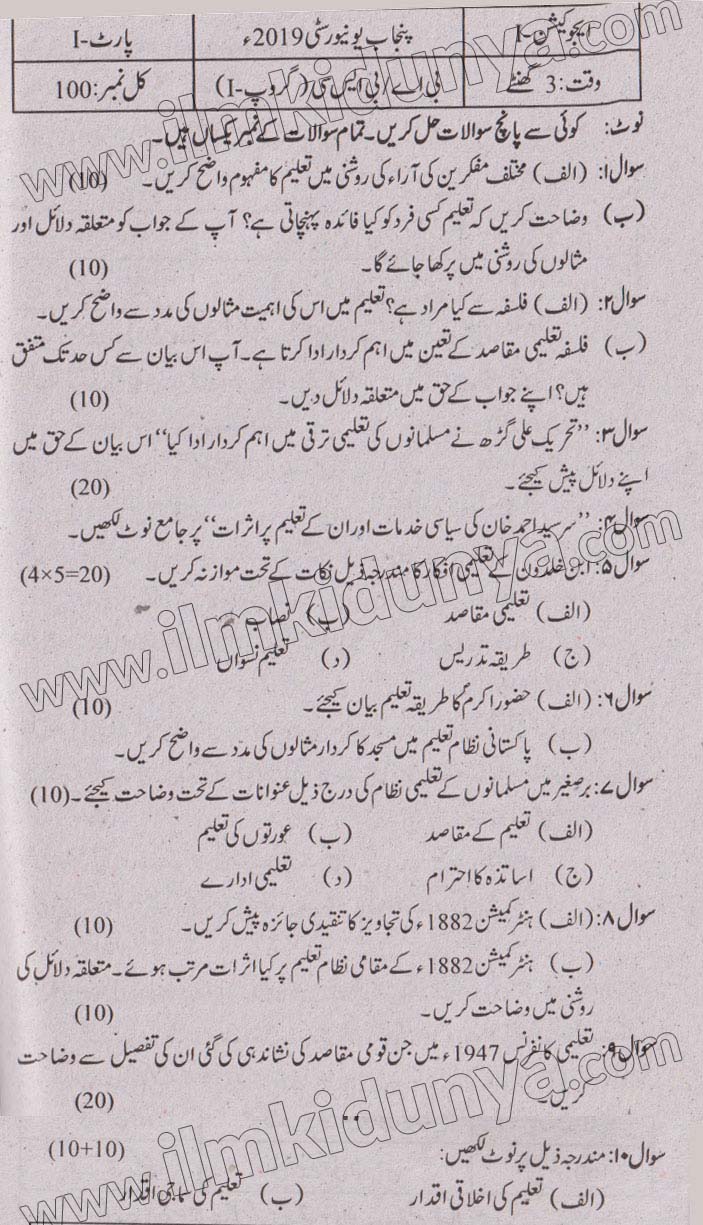 ایجوکیشن-I
پنجاب یونیورسٹی 2019ء
پارٹ-I
وقت: 3 گھنٹے
بی اے/بی ایس سی (گروپ-I)
کل نمبر: 100
نوٹ: کوئی سے پانچ سوالات حل کریں۔ تمام سوالات کے نمبر یکساں ہیں۔
سوال۱: (الف) مختلف مفکرین کی آراء کی روشنی میں تعلیم کا مفہوم واضح کریں۔ (10)
(ب) وضاحت کریں کہ تعلیم کسی فرد کو کیا فائدہ پہنچاتی ہے؟ آپ کے جواب کو متعلقہ دلائل اور
مثالوں کی روشنی میں پرکھا جائے گا۔ (10)
سوال۲: (الف) فلسفہ سے کیا مراد ہے؟ تعلیم میں اس کی اہمیت مثالوں کی مدد سے واضح کریں۔
(ب) فلسفہ تعلیمی مقاصد کے تعین میں اہم کردار ادا کرتا ہے۔ آپ اس بیان سے کس حد تک متفق
ہیں؟ اپنے جواب کے حق میں متعلقہ دلائل دیں۔ (10)
سوال۳: ’’تحریک علی گڑھ نے مسلمانوں کی تعلیمی ترقی میں اہم کردار ادا کیا‘‘ اس بیان کے حق میں
اپنے دلائل پیش کیجئے۔ (20)
سوال۴: ’’سرسید احمد خان کی سیاسی خدمات اور ان کے تعلیم پر اثرات‘‘ پر جامع نوٹ لکھیں۔
سوال۵: ابن خلدون کے تعلیمی افکار کا مندرجہ ذیل نکات کے تحت موازنہ کریں۔ (4×5=20)
(الف) تعلیمی مقاصد (ب) نصاب
(ج) طریقہ تدریس (د) تعلیم نسواں
سوال۶: (الف) حضور اکرمؐ کا طریقہ تعلیم بیان کیجئے۔ (10)
(ب) پاکستانی نظام تعلیم میں مسجد کا کردار مثالوں کی مدد سے واضح کریں۔
سوال۷: برصغیر میں مسلمانوں کے تعلیمی نظام کی درج ذیل عنوانات کے تحت وضاحت کیجئے۔ (10)
(الف) تعلیم کے مقاصد (ب) عورتوں کی تعلیم
(ج) اساتذہ کا احترام (د) تعلیمی ادارے
سوال۸: (الف) ہنٹر کمیشن 1882ء کی تجاویز کا تنقیدی جائزہ پیش کریں۔ (10)
(ب) ہنٹر کمیشن 1882ء کے مقامی نظام تعلیم پر کیا اثرات مرتب ہوئے۔ متعلقہ دلائل کی
روشنی میں وضاحت کریں۔ (10)
سوال۹: تعلیمی کانفرنس 1947ء میں جن قومی مقاصد کی نشاندہی کی گئی ان کی تفصیل سے وضاحت
کریں۔ (20)
سوال۱۰: مندرجہ ذیل پر نوٹ لکھیں: (10+10)
(الف) تعلیم کی اخلاقی اقدار (ب) تعلیم کی سماجی اقدار
www.ilmkidunya.com
www.ilmkidunya.com
www.ilmkidunya.com
www.ilmkidunya.com